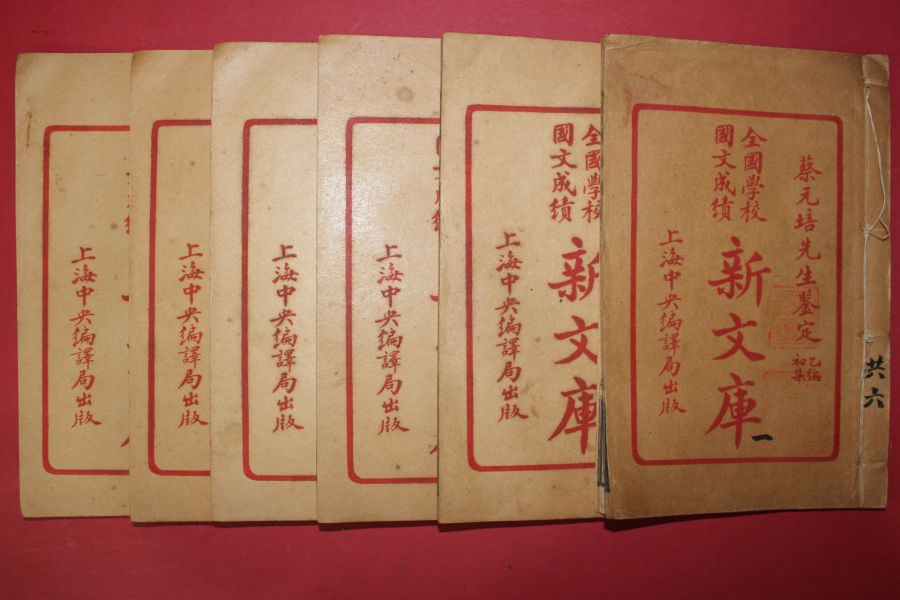 蔡元培先生鉴定
乙编
初集
全國學校
國文成绩
新文庫
一
上海中央编譯局出版
共六
全國學校
國文成绩
新文庫
上海中央编譯局出版
上海中央编譯局出版
上海中央编譯局出版
上海中央编譯局出版
上海中央编譯局出版